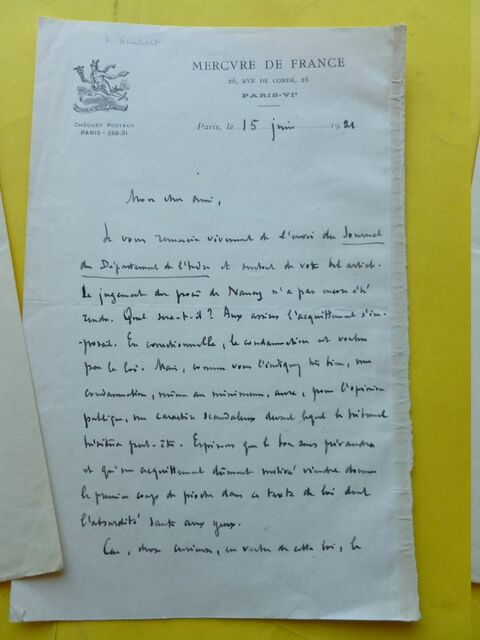 MERCVRE DE FRANCE
26, RVE DE CONDÉ, 26
PARIS-VIᵉ
CHÈQUES POSTAUX
PARIS - 259.31
Paris, le 15 juin 1921
Mon cher ami,
Je vous remercie vivement de l'envoi du Journal
du Département de l'Indre et surtout de votre bel article.
Le jugement du procès de Nancy n'a pas encore été
rendu. Quel sera-t-il ? Aux assises l'acquittement s'im-
-posait. En correctionnelle, la condamnation est
par la loi. Mais, comme vous l'indiquez très bien, une
condamnation, même au minimum, aura, pour l'opinion
publique, un caractère scandaleux devant lequel le tribunal
hésitera peut-être. Espérons que le bon sens prévaudra
et qu'un acquittement dûment motivé viendra donner
le premier coup de pioche dans ce texte de loi dont
l'absurdité saute aux yeux.
Car, chose curieuse, en vertu de cette loi, le